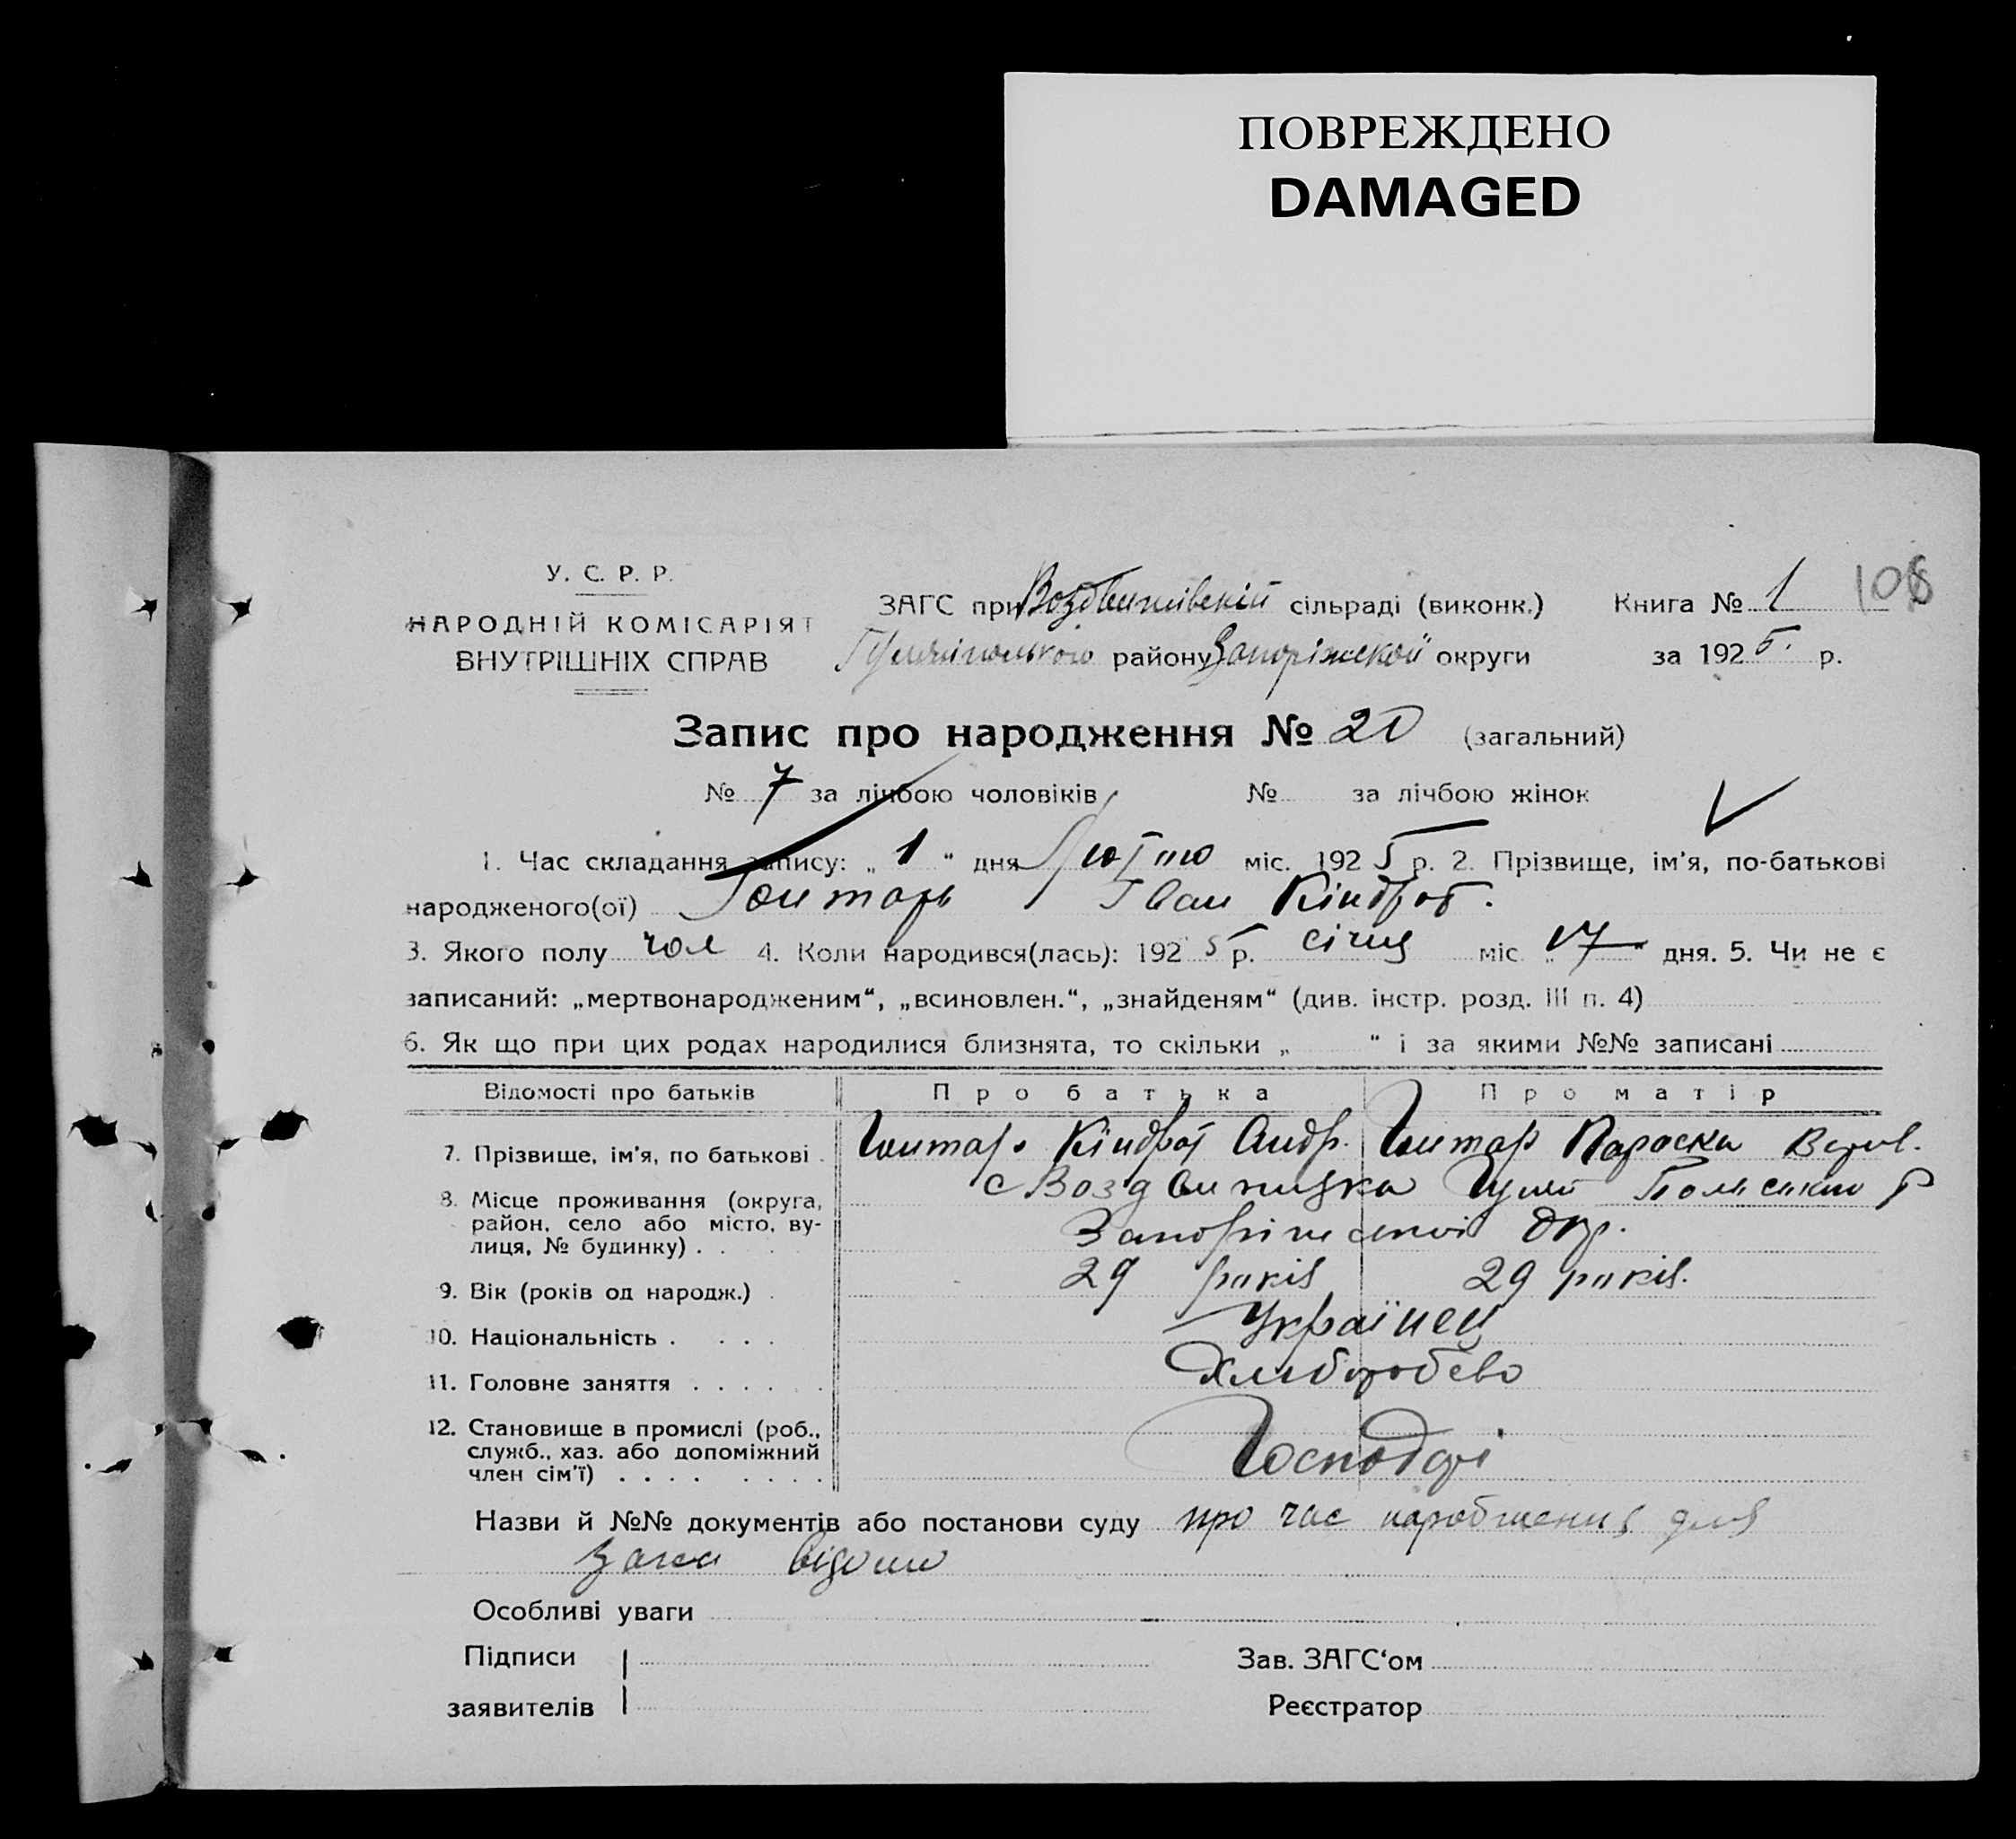 ПОВРЕЖДЕНО
DAMAGED
У. С. Р. Р.
НАРОДНІЙ КОМІСАРІЯТ
ВНУТРІШНІХ СПРАВ
ЗАГС при Воздвижівській сільраді (виконк.) Книга № 1
району Запоріжской округи за 1925 р.
Запис про народження № 20 (загальний)
№ 7 за лічбою чоловіків № за лічбою жінок
1. Час складання запису: „ 1 " дня Лютого міс. 1925 р. 2. Прізвище, ім'я, по-батькові
народженого(ої) Гонтарь Іван Кіндрат.
3. Якого полу чол 4. Коли народився(лась): 1925 р. січня міс. „17" дня. 5. Чи не є
записаний: „мертвонародженим", „всиновлен.", „знайденям" (див. інстр. розд. III п. 4)
6. Як що при цих родах народилися близнята, то скільки „ " і за якими №№ записані
Відомості про батьків Про батька Про матір
7. Прізвище, ім'я, по батькові Гонтарь Кіндрат Андр. Гонтар Параска
8. Місце проживання (округа, район, село або місто, вулиця, № будинку) с Воздвижика Гуляй Польського Р
Запоріжської Окр.
9. Вік (років од народж.) 29 років 29 років.
10. Національність Українец
11. Головне заняття Хлиборобсво
12. Становище в промислі (роб., служб., хаз. або допоміжний член сім'ї) Господарі
Назви й №№ документів або постанови суду про час народження для
відомо
Особливі уваги
Підписи Зав. ЗАГС'ом
заявителів Реєстратор